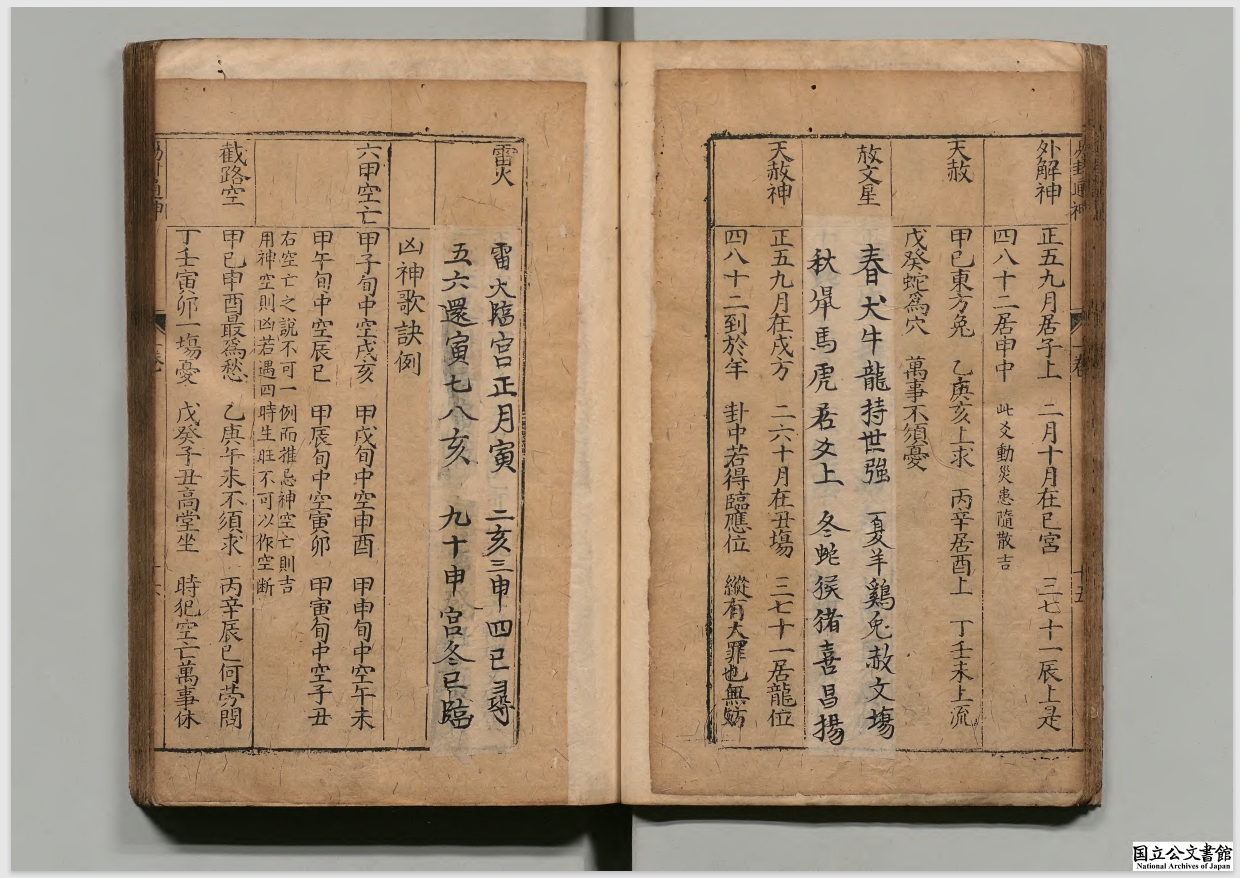 外解神
正五九月居子上 二月十月在巳宮 三七十一辰上是
四八十二居申中 此爻動災患隨散吉
天赦
甲巳東方兔 乙庚亥上求 丙辛居酉上 丁壬未上流
戊癸蛇爲穴 萬事不須憂
赦文星
春犬牛龍持世强 夏羊鷄兔赦文塲
秋馬虎居爻上 冬蛇猴猪喜昌揚
天赦神
正五九月在戌方 二六十月在丑塲 三七十一居龍位
四八十二到於年 卦中若得臨應位 縱有大罪也無妨
雷火
雷火臨宫正月寅 二亥三申四巳尋
五六還寅七八亥 九十申宫冬巳臨
凶神歌訣例
六甲空亡
甲子旬中空戌亥 甲戌旬中空申酉 甲申旬中空午未
甲午旬中空辰巳 甲辰旬中空寅卯 甲寅旬中空子丑
右空亡之說不可一例而推忌神空亡則吉
用神空則凶若遇四時生旺不可以作空断
截路空
甲己申酉最爲愁 乙庚午未不須求 丙辛辰巳何劳問
丁壬寅卯一塲憂 戊癸子丑高堂坐 時犯空亡萬事休
国立公文書館
National Archives of Japan